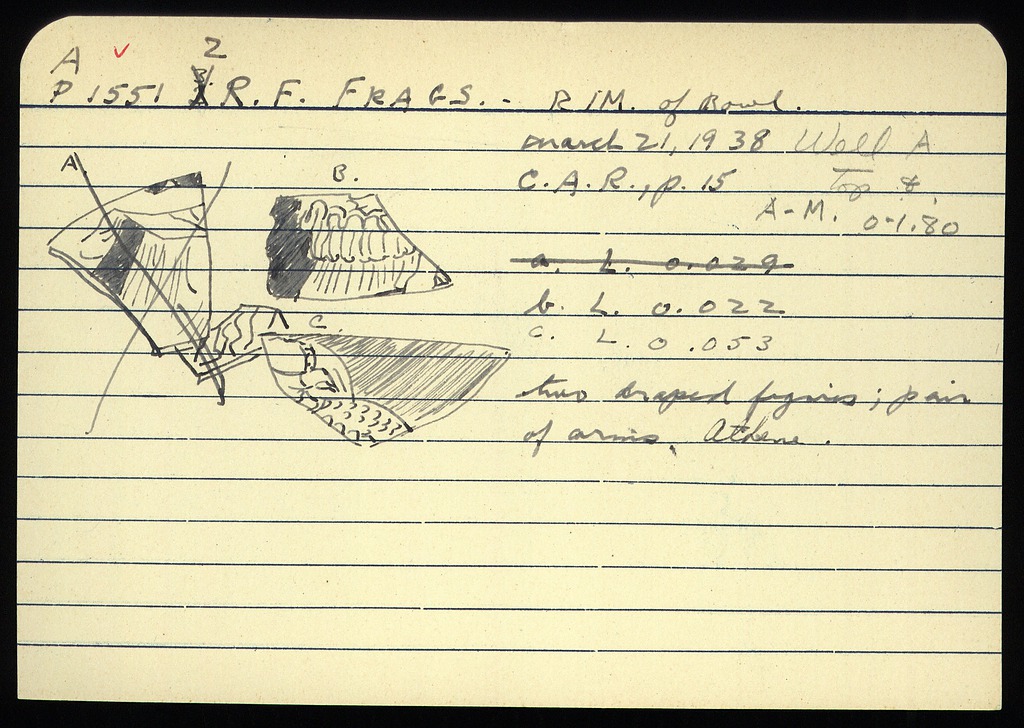 A ✓ 2
P 1551 R. F. FRAGS. - RIM. of Bowl.
march 21, 1938 Well A
C.A.R., p. 15 Top &
A-M. 0-1.80
A.
B.
a. L. 0.029
b. L. 0.022
C.
c. L. 0.053
two draped figures; pair
of arms, Athena.